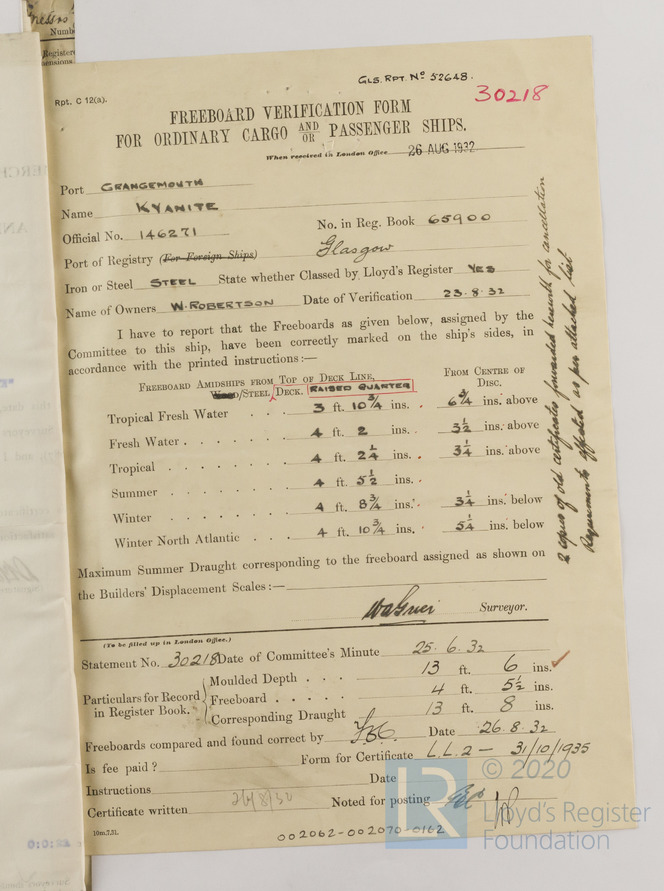 Numb
Registere
GLS. RPT. No 52648.
30218
Rpt. C 12(a).
FREEBOARD VERIFICATION FORM
FOR ORDINARY CARGO AND OR PASSENGER SHIPS.
When received in London Office 26 AUG 1932
Port GRANGEMOUTH
Name KYANITE
Official No. 146271 No. in Reg. Book 65900
Port of Registry (For Foreign Ships) Glasgow
Iron or Steel STEEL State whether Classed by Lloyd's Register YES
Name of Owners W. ROBERTSON Date of Verification 23.8.32
I have to report that the Freeboards as given below, assigned by the
Committee to this ship, have been correctly marked on the ship's sides, in
accordance with the printed instructions:—
FREEBOARD AMIDSHIPS FROM TOP OF DECK LINE, FROM CENTRE OF
/STEEL DECK. RAISED QUARTER DISC.
Tropical Fresh Water . . . 3 ft. 10 3/4 ins. 6 3/4 ins. above
Fresh Water . . . . . . 4 ft. 2 ins. 3 1/2 ins. above
Tropical . . . . . . . 4 ft. 2 1/4 ins. 3 1/4 ins. above
Summer . . . . . . . 4 ft. 5 1/2 ins.
Winter . . . . . . . 4 ft. 8 3/4 ins. 3 1/4 ins. below
Winter North Atlantic . . . 4 ft. 10 3/4 ins. 5 1/4 ins. below
Maximum Summer Draught corresponding to the freeboard assigned as shown on
the Builders' Displacement Scales:—
Surveyor.
2 copies of old certificates forwarded herewith for cancellation
Requirements effected as per attached list
(To be filled up in London Office.)
Statement No. 30218 Date of Committee's Minute 25.6.32
Particulars for Record in Register Book.
Moulded Depth . . . 13 ft. 6 ins.
Freeboard . . . . . 4 ft. 5 1/2 ins.
Corresponding Draught 13 ft. 8 ins.
Freeboards compared and found correct by Date 26.8.32
Is fee paid? Form for Certificate L.L.2 — 31/10/1935
Instructions Date
Certificate written 26/8/32 Noted for posting
10m.7.31.
002062-002070-0162
LR © 2020
Lloyd's Register
Foundation